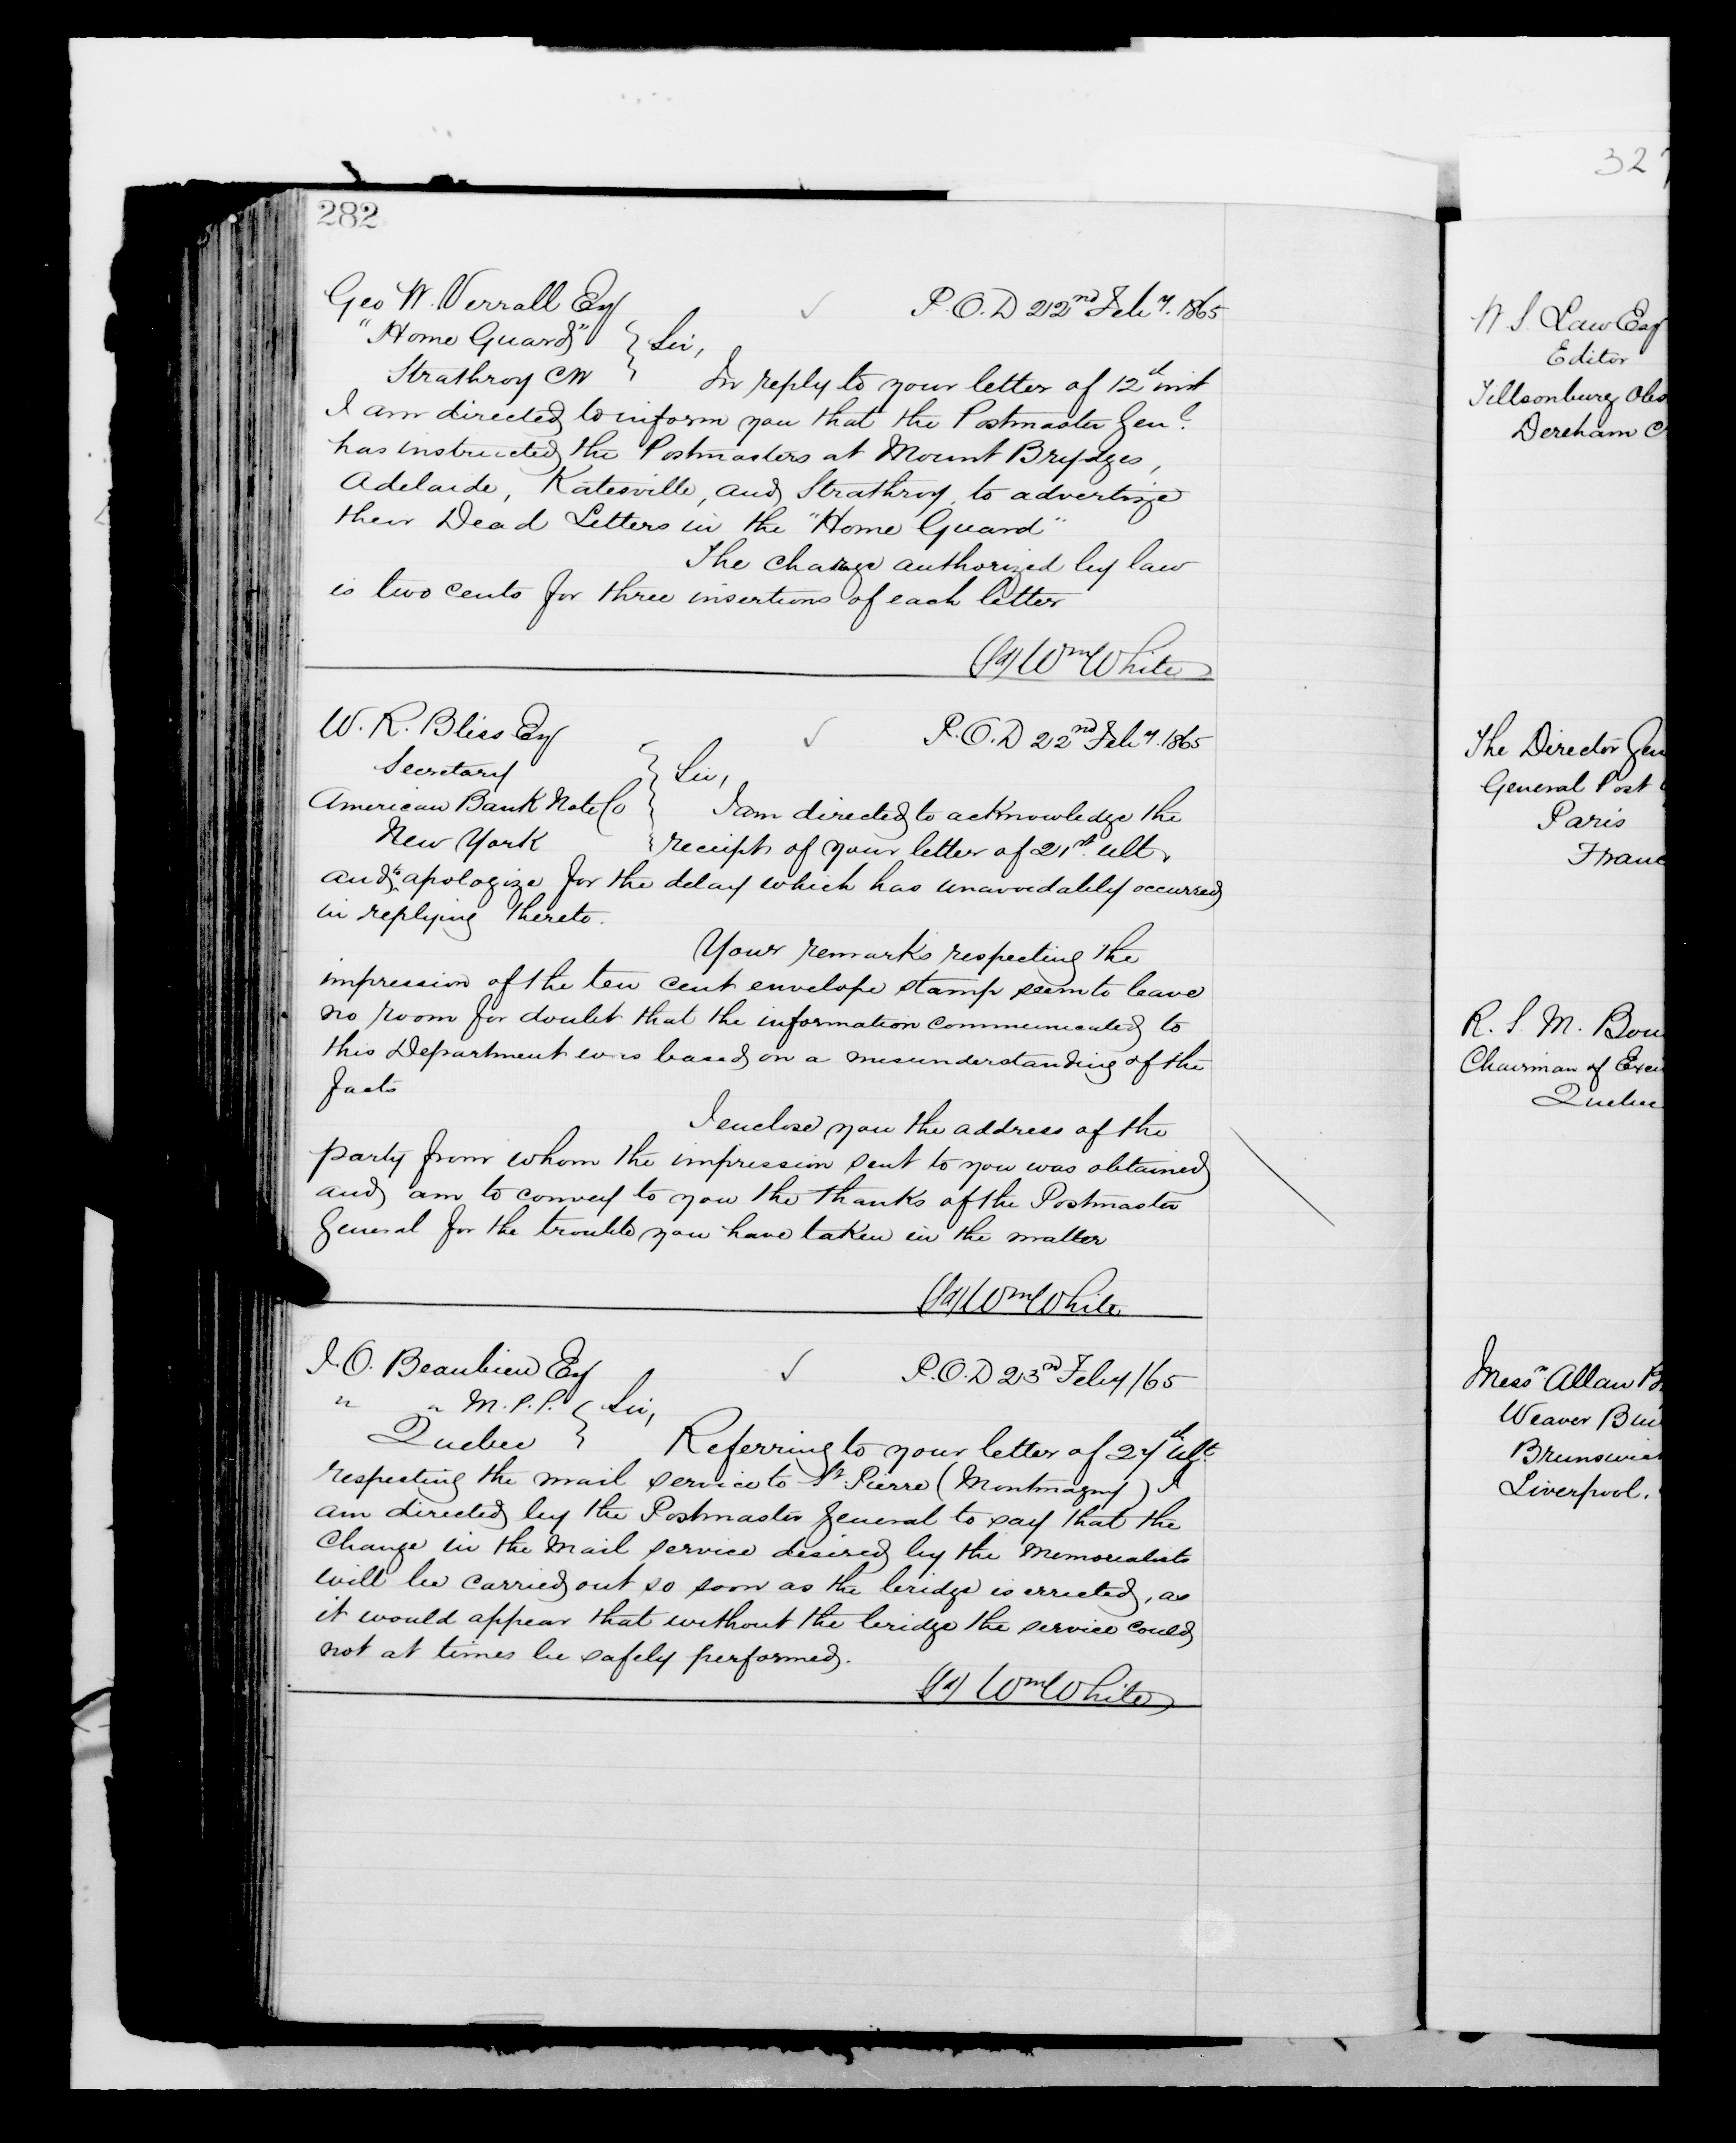 282
Geo W. Verrall Esq ✓ P.O.D 22nd Feby. 1865
"Home Guard" } Sir,
Strathroy CW } In reply to your letter of 12th inst
I am directed to inform you that the Postmaster Genl.
has instructed the Postmasters at Mount Brydges,
Adelaide, Katesville, and Strathroy, to advertize
their Dead Letters in the "Home Guard"
The charge authorized by law
is two cents for three insertions of each letter
(Sd) Wm White
W. R. Bliss Esq ✓ P.O.D 22nd Feby. 1865
Secretary } Sir,
American Bank Note Co I am directed to acknowledge the
New York receipt of your letter of 21st. ult,
and to apologize for the delay which has unavoidably occurred
in replying thereto.
Your remarks respecting the
impression of the ten cent envelope stamp seem to leave
no room for doubt that the information communicated to
this Department was based on a misunderstanding of the
facts
I enclose you the address of the
party from whom the impression sent to you was obtained
and am to convey to you the thanks of the Postmaster
General for the trouble you have taken in the matter
(Sd) Wm White
J. O. Beaubien Esq ✓ P.O.D 23rd Feby /65
" " M.P.P. } Sir,
Quebec } Referring to your letter of 27th ult.
respecting the mail service to St. Pierre (Montmagny) I
am directed by the Postmaster General to say that the
change in the Mail service desired by the Memorialists
will be carried out so soon as the bridge is errected, as
it would appear that without the bridge the service could
not at times be safely performed.
(Sd) Wm White
327
W. S. Law Esq
Editor
Tillsonburg Obs
Dereham C
The Director Gen
General Post
Paris
Franc
R. S. M. Bou
Chairman of Exec
Quebec
Messrs Allan B
Weaver Bui
Brunswick
Liverpool.